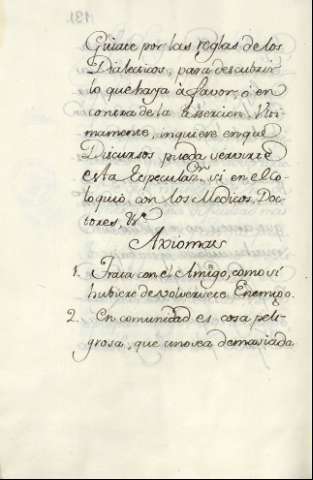 Guiate por las reglas de los
Dialecticos, para descubrir
lo que haya á favor, ó en
contra de la Asercion. Ulti
mamente, inquiere en que
Discursos pueda servirte
esta Especulaz.n si en el Co
loquio, con los Medicos, Doc
tores &a
Axiomas
1. Trata con el Amigo, como si
hubiere de volverse Enemigo.
2. En comunidad es cosa peli
grosa, que uno sea demasiada